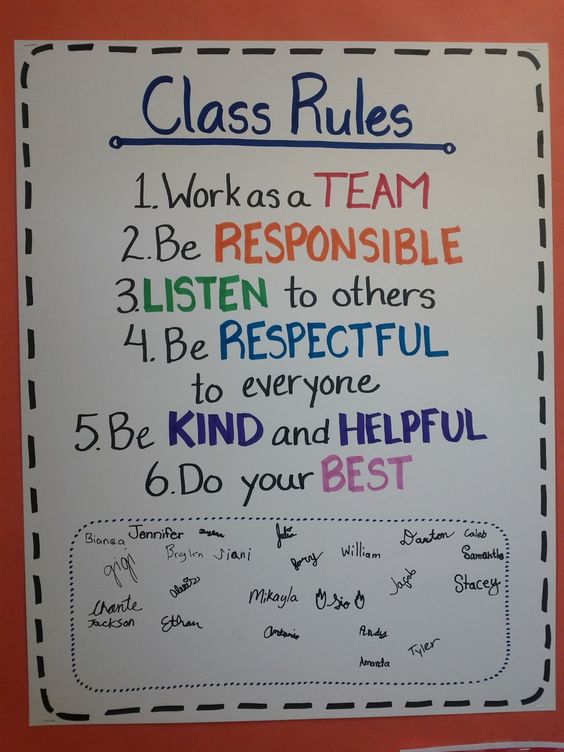 Class Rules
1. Work as a TEAM
2. Be RESPONSIBLE
3. LISTEN to others
4. Be RESPECTFUL
to everyone
5. Be KIND and HELPFUL
6. Do your BEST
Bianca Jennifer Julia Darton Caleb
gigi Braylen Siani William Samantha
Jacob Stacey
Chante Mikayla Sio
Jackson Ethan Antonio Andy
Amanda Tyler